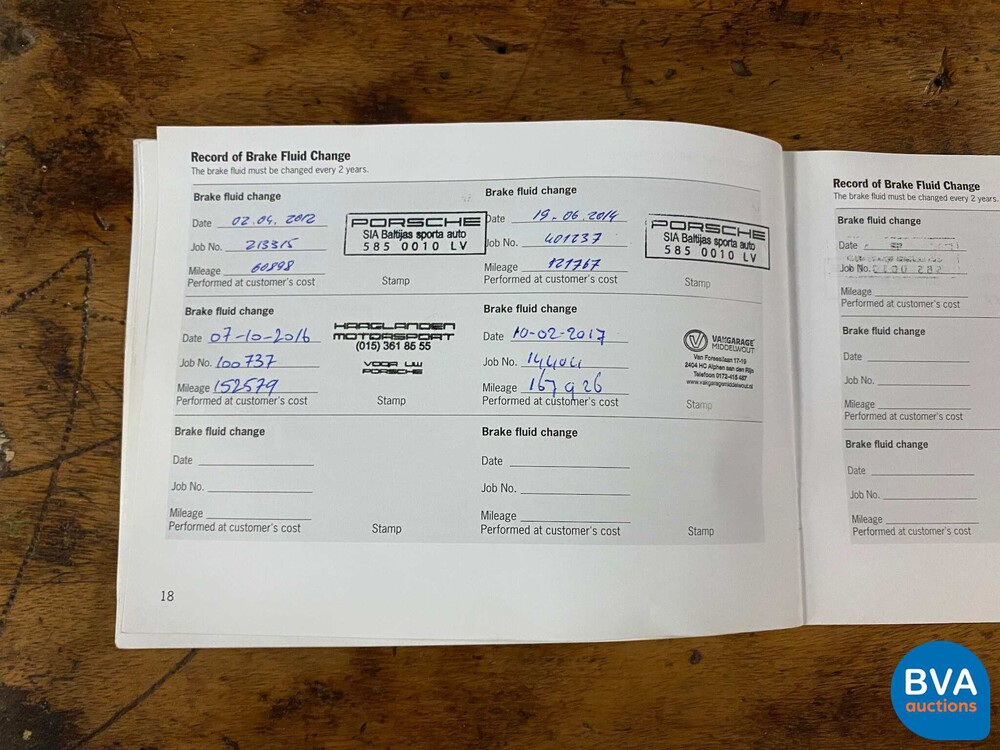 Record of Brake Fluid Change
The brake fluid must be changed every 2 years.
Brake fluid change
Date 02.04.2012
Job No. 213315
Mileage 60898
Performed at customer's cost
PORSCHE
SIA Baltijas sporta auto
585 0010 LV
Stamp
Brake fluid change
Date 19.06.2014
Job No. 401237
Mileage 121767
Performed at customer's cost
PORSCHE
SIA Baltijas sporta auto
585 0010 LV
Stamp
Brake fluid change
Date 07-10-2016
Job No. 100737
Mileage 152579
Performed at customer's cost
HAAGLANDEN
MOTORSPORT
(015) 361 85 55
VOOR UW
PORSCHE
Stamp
Brake fluid change
Date 10-02-2017
Job No. 14404
Mileage 167926
Performed at customer's cost
VAKGARAGE
MIDDELWOUT
Van Foreestlaan 17-19
2404 HC Alphen aan den Rijn
Telefoon 0172-415 487
www.vakgaragemiddelwout.nl
Stamp
Brake fluid change
Date
Job No.
Mileage
Performed at customer's cost
Stamp
Brake fluid change
Date
Job No.
Mileage
Performed at customer's cost
Stamp
18
Record of Brake Fluid Change
The brake fluid must be changed every 2 years.
Brake fluid change
Date
Job No.
Mileage
Performed at customer's cost
Brake fluid change
Date
Job No.
Mileage
Performed at customer's cost
Brake fluid change
Date
Job No.
Mileage
Performed at customer's cost
BVA
auctions